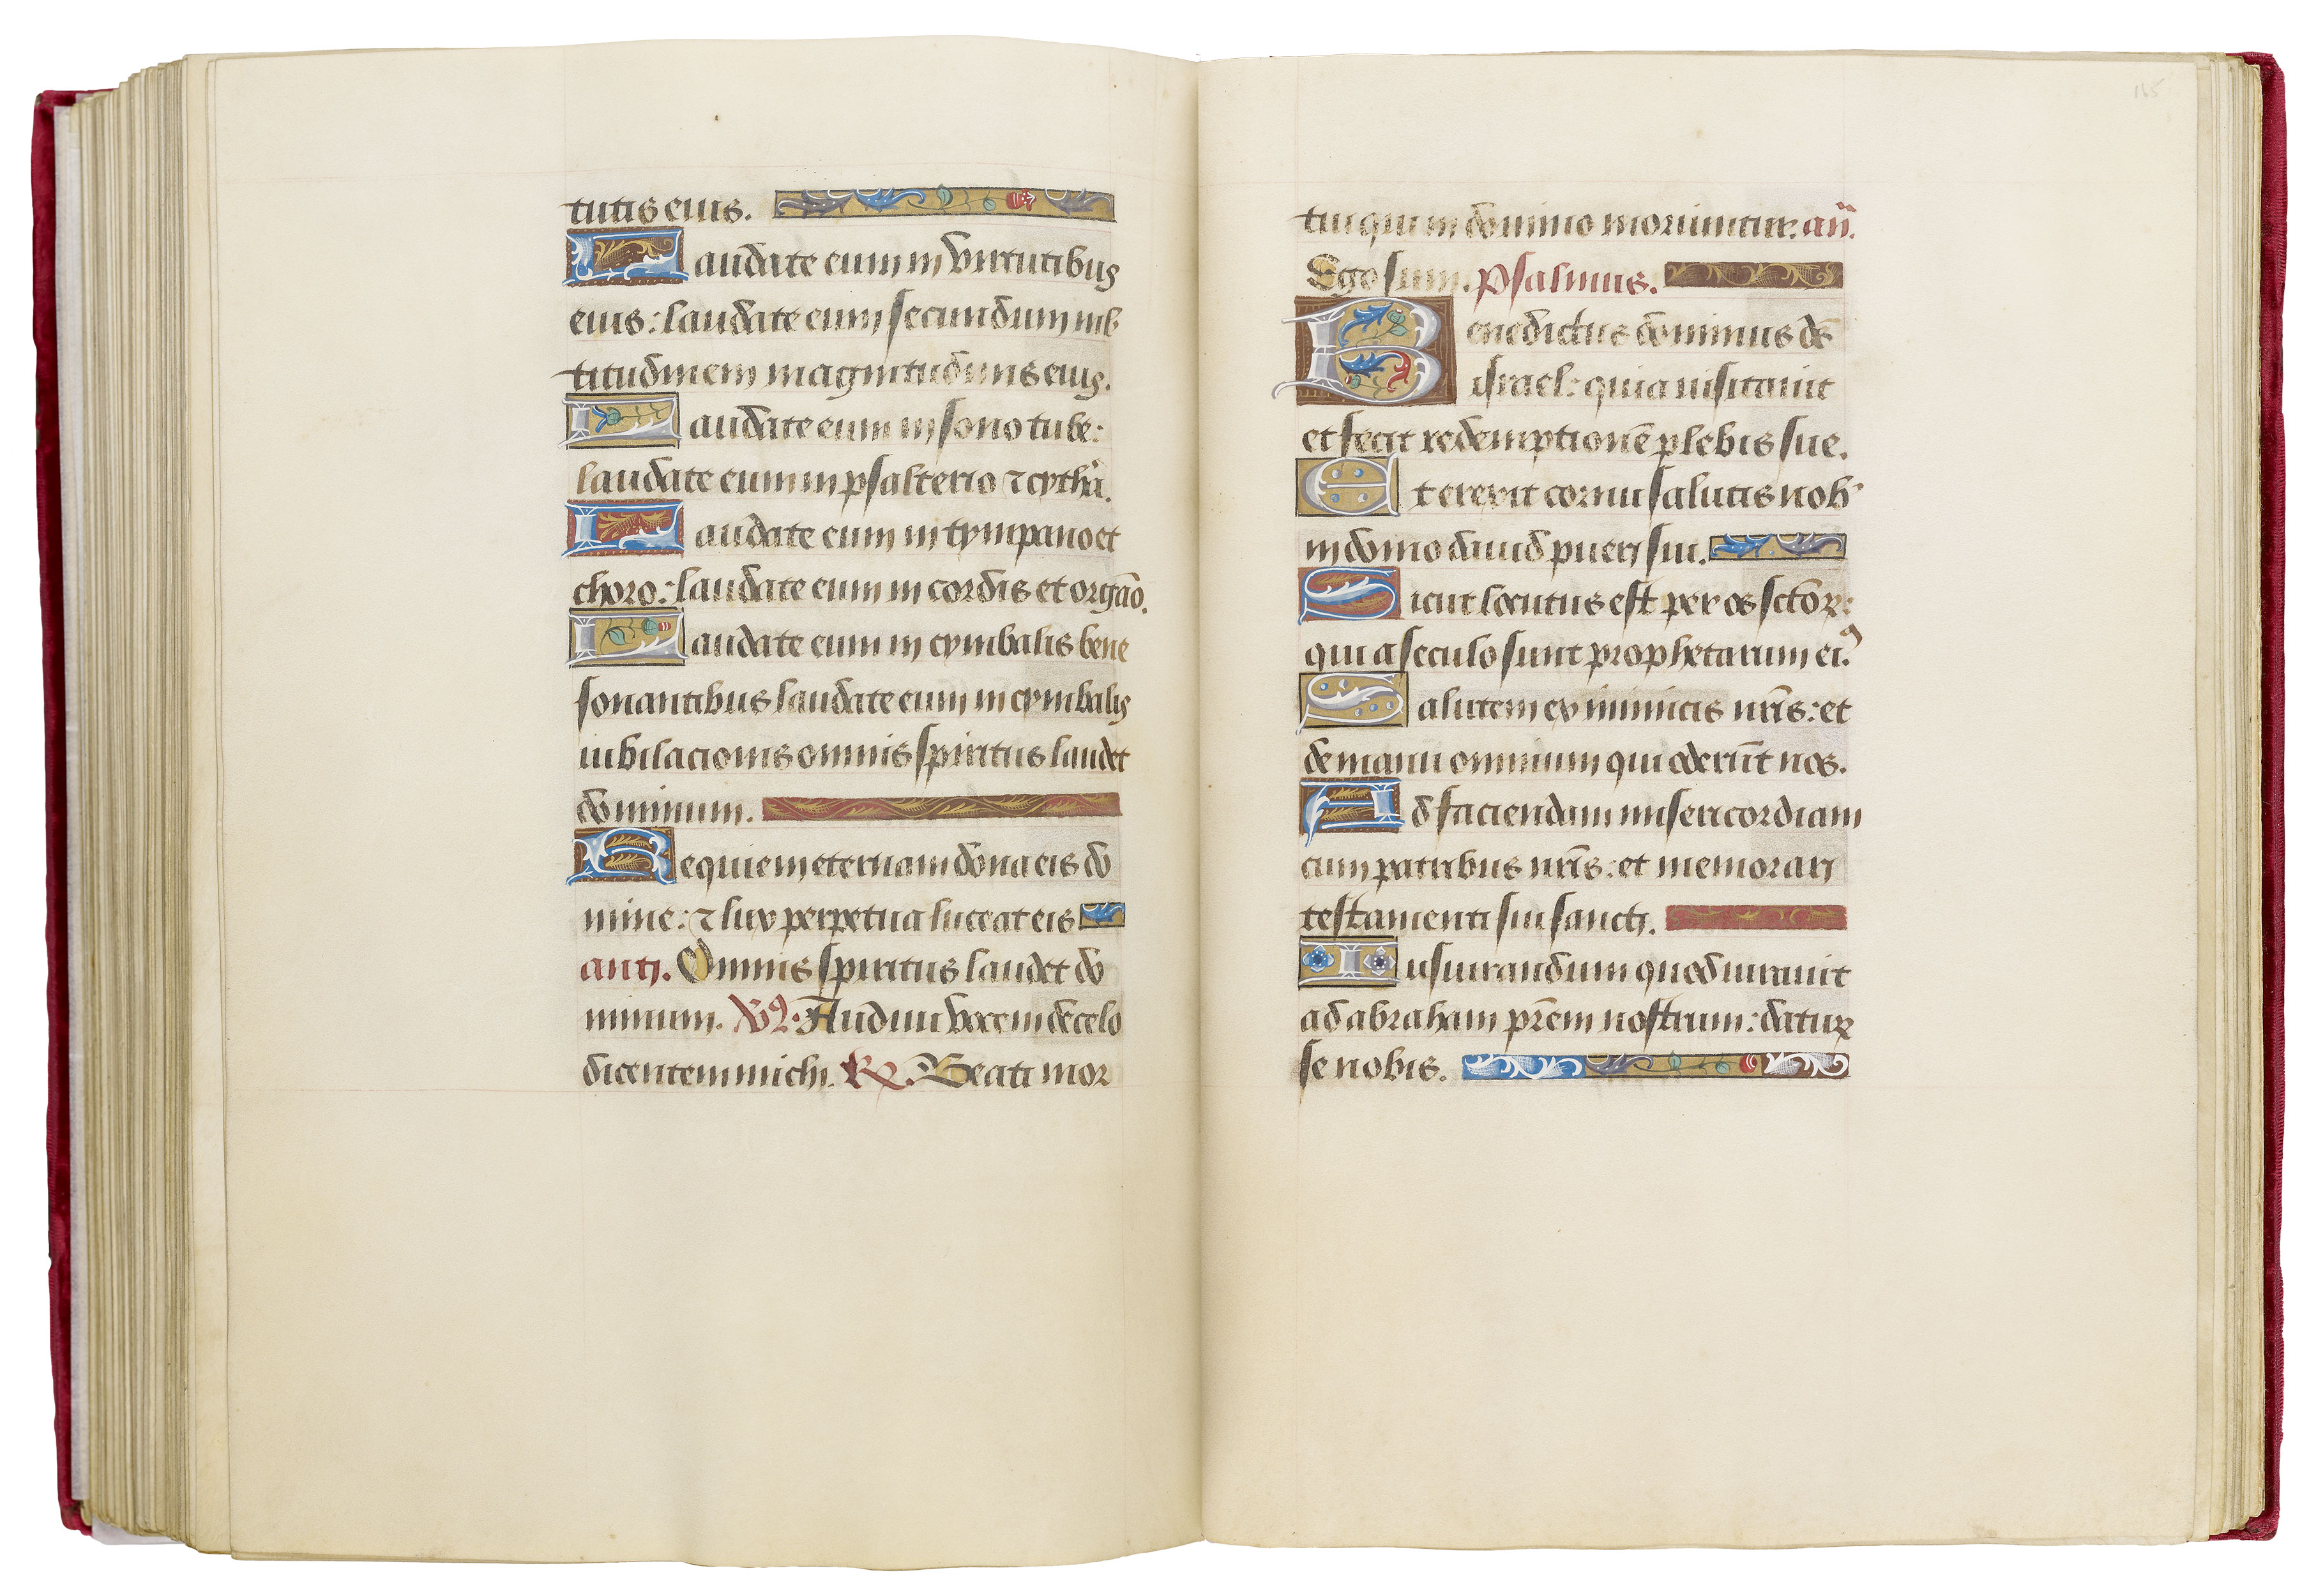 tutis eius.
Laudate eum in virtutibus
eius: laudate eum secundum mlt
titudinem magnitudinis eius.
Laudate eum in sono tube:
laudate eum in psalterio ⁊ cytha̓.
Laudate eum in tympano et
choro: laudate eum in cordis et orgāo.
Laudate eum in cymbalis bene
sonantibus laudate eum in cymbalis
iubilacionis omnis spiritus laudet
dominum.
Requiem eternam dona eis do
mine: ⁊ lux perpetua luceat eis
anti. Omnis spiritus laudet do
minum. Audiui vocem de celo
dicentem michi. ℟. Beati mor
tui qui in domino moriuntur. an̄.
Ego sum. Psalmus.
Benedictus dominus ds̄
israel: quia uisitauit
et fecit redemptionē plebis sue.
Et erexit cornu salutis nob̓
in domo dauid pueri sui.
Sicut locutus est per os sctoꝝ:
qui a seculo sunt prophetarum eiꝰ.
Salutem ex inimicis nr̄is: et
de manu omnium qui oderūt nos.
Ad faciendam misericordiam
cum patribus nr̄is: et memorari
testamenti sui sancti.
Iusiurandum quod iurauit
ad abraham pr̄em nostrum: daturꝝ
se nobis.
165